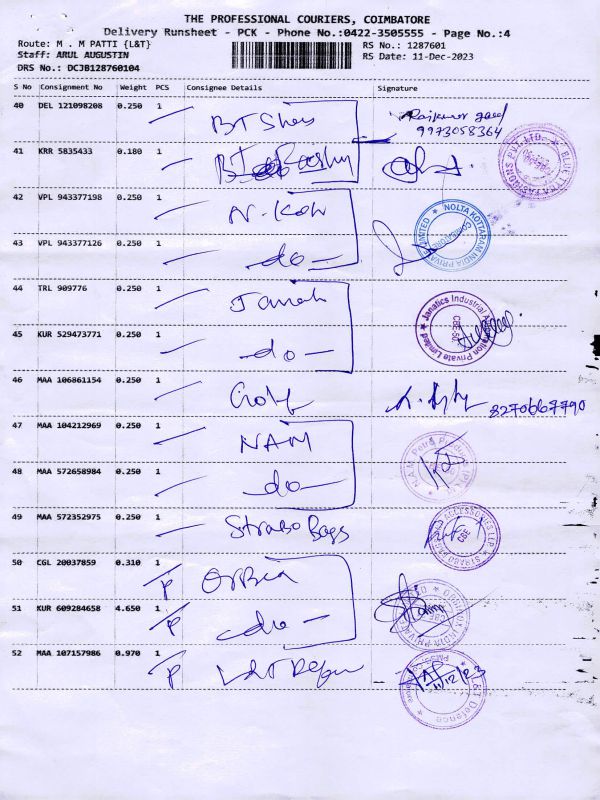 THE PROFESSIONAL COURIERS, COIMBATORE
Delivery Runsheet - PCK - Phone No.:0422-3505555 - Page No.:4
Route: M . M PATTI {L&T}
RS No.: 1287601
Staff: ARUL AUGUSTIN
RS Date: 11-Dec-2023
DRS No.: DCJB128760104
S No Consignment No Weight PCS Consignee Details Signature
40 DEL 121098208 0.250 1
9973058364
41 KRR 5835433 0.180 1
42 VPL 943377198 0.250 1
NOLTA KOTTARAM INDIA PRIVATE LIMITED
43 VPL 943377126 0.250 1 do
44 TRL 909776 0.250 1
Janatics Industrial Automation Private Limited
45 KUR 529473771 0.250 1 do
46 MAA 106861154 0.250 1
8270667790
47 MAA 104212969 0.250 1 NAM
48 MAA 572658984 0.250 1 do
49 MAA 572352975 0.250 1 Strabo Bags
50 CGL 20037859 0.310 1
51 KUR 609284658 4.650 1 do
52 MAA 107157986 0.970 1
11/12/23
L&T Defence